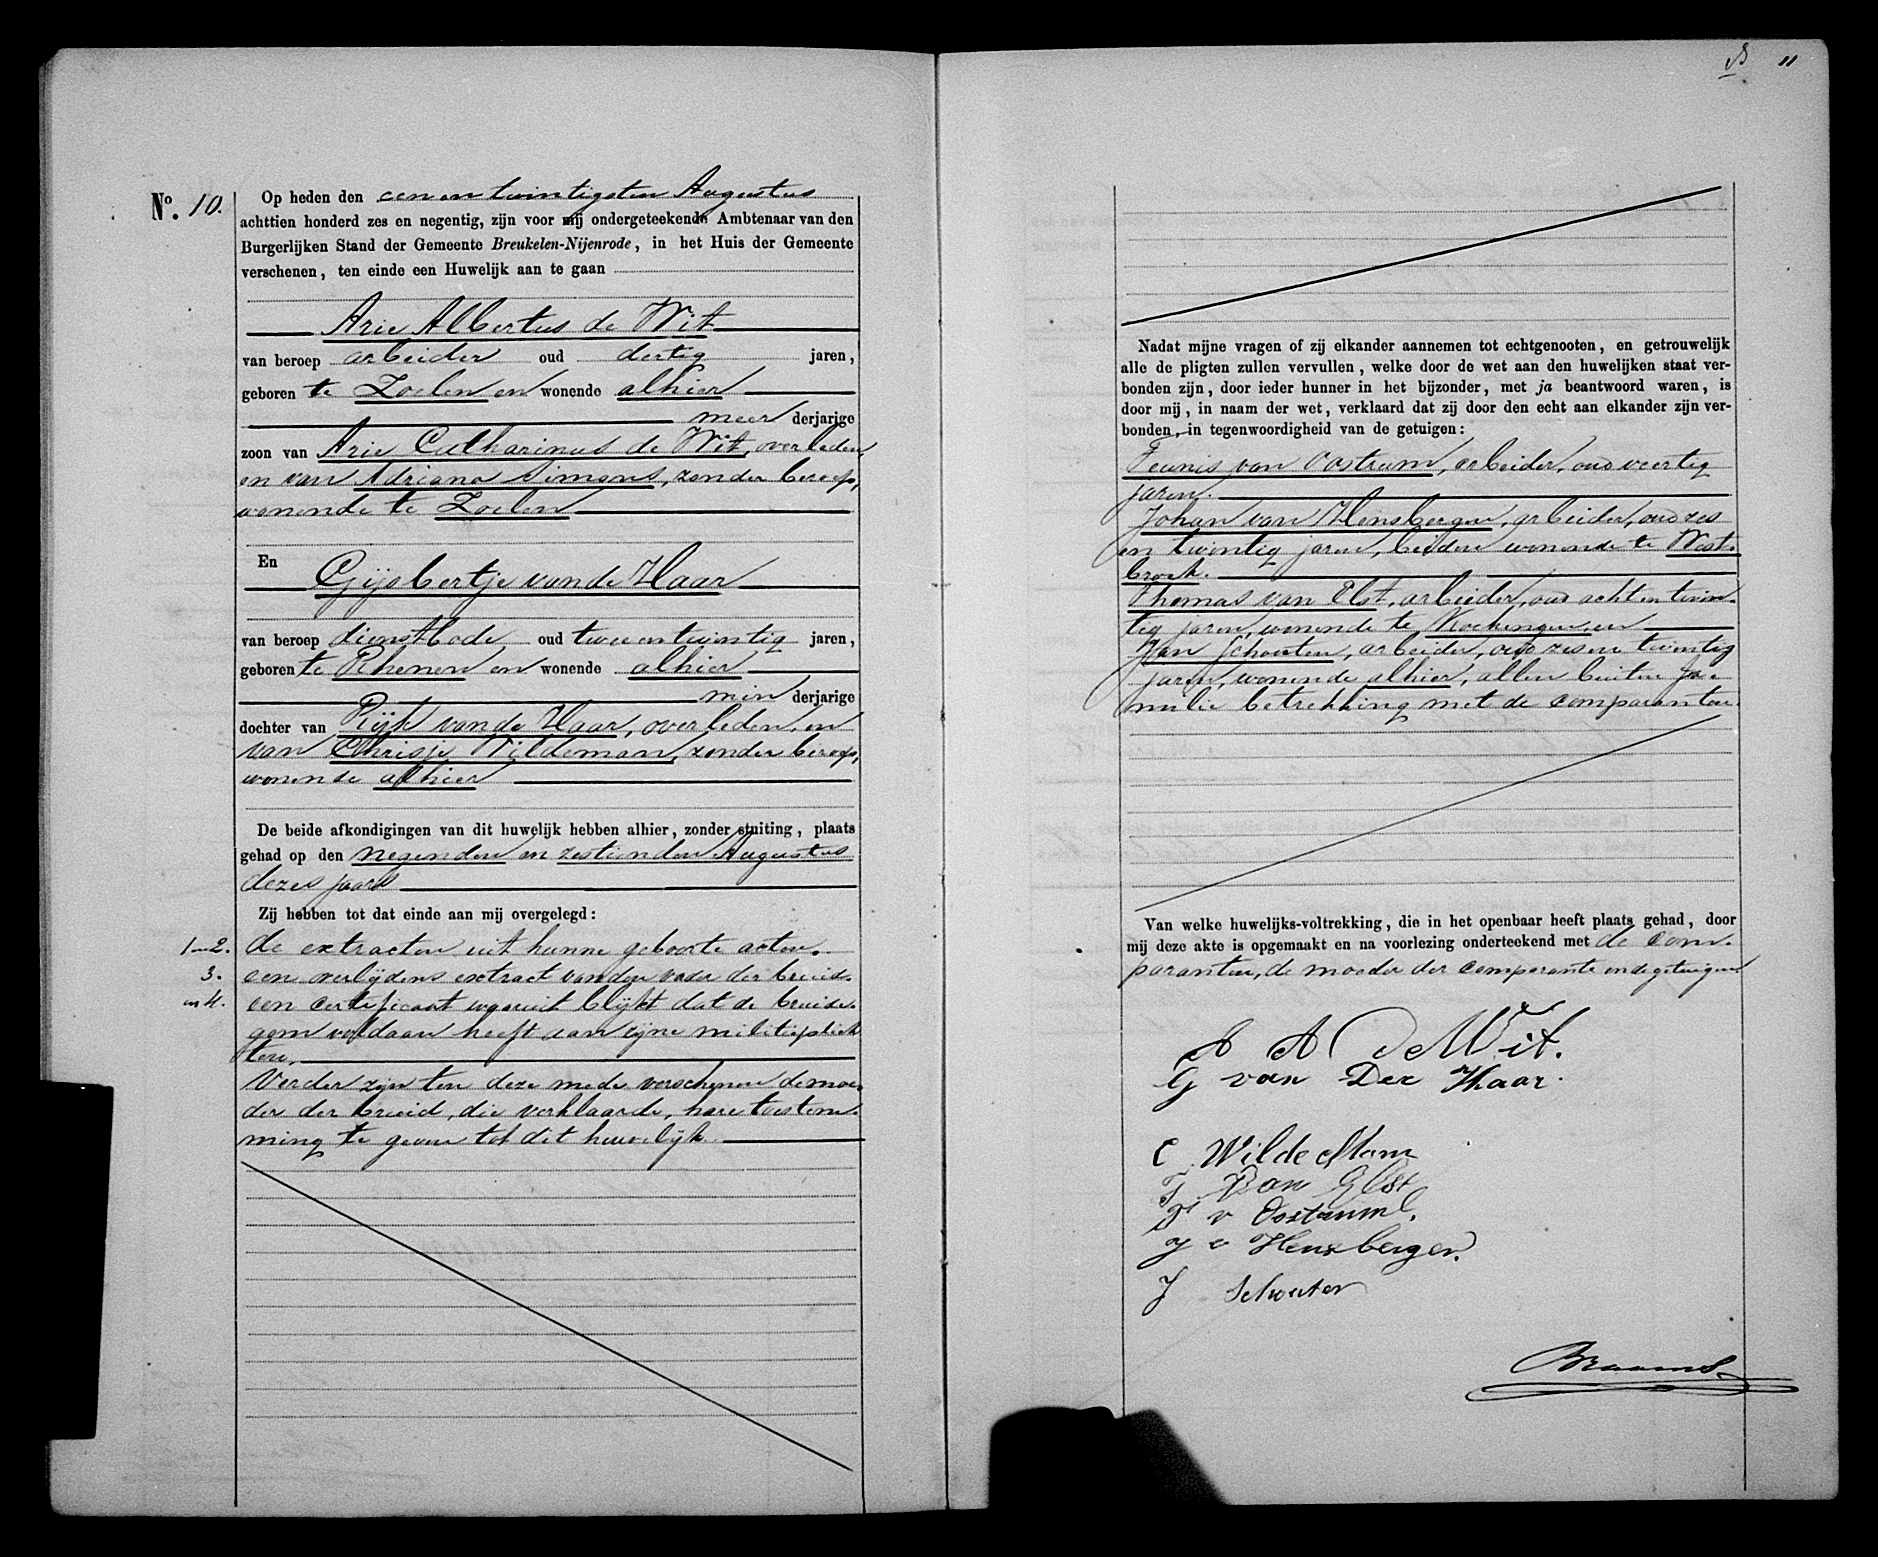 No. 10. Op heden den een en twintigsten Augustus
achttien honderd zes en negentig, zijn voor mij ondergeteekende Ambtenaar van den
Burgerlijken Stand der Gemeente Breukelen-Nijenrode, in het Huis der Gemeente
verschenen, ten einde een Huwelijk aan te gaan
Arie Albertus de Wit
van beroep arbeider oud dertig jaren,
geboren te Zoelen en wonende alhier
meer derjarige
zoon van Arie Catharinus de Wit, overleden,
en van Adriana Timons, zonder beroep,
wonende te Zoelen
En
Gijsbertje van de Haar
van beroep dienstbode oud twee en twintig jaren,
geboren te Rhenen en wonende alhier
min derjarige
dochter van Rijk van de Haar, overleden, en
van Chrisje Wildeman, zonder beroep,
wonende alhier
De beide afkondigingen van dit huwelijk hebben alhier, zonder stuiting, plaats
gehad op den negenden en zestienden Augustus
dezes jaars
Zij hebben tot dat einde aan mij overgelegd:
1 en 2. de extracten uit hunne geboorte acten.
3. een overlijdens extract van den vader der bruid.
en 4. een certificaat waaruit blijkt dat de bruide-
gom voldaan heeft aan zijne militieplich
ten.
Verder zijn ten deze mede verschenen de moe-
der der bruid, die verklaarde, hare toestem-
ming te geven tot dit huwelijk.
11
Nadat mijne vragen of zij elkander aannemen tot echtgenooten, en getrouwelijk
alle de pligten zullen vervullen, welke door de wet aan den huwelijken staat ver-
bonden zijn, door ieder hunner in het bijzonder, met ja beantwoord waren, is
door mij, in naam der wet, verklaard dat zij door den echt aan elkander zijn ver-
bonden, in tegenwoordigheid van de getuigen:
Teunis van Oostrum, arbeider, oud veertig
jaren.
Johan van Hensbergen, arbeider, oud zes
en twintig jaren, beiden wonende te West-
broek.
Thomas van Elst, arbeider, oud acht en twin-
tig jaren, wonende te Kockengen en
Jan Schouten, arbeider, oud zes en twintig
jaren, wonende alhier, allen buiten fa-
milie betrekking met de comparanten.
Van welke huwelijks-voltrekking, die in het openbaar heeft plaats gehad, door
mij deze akte is opgemaakt en na voorlezing onderteekend met de com-
paranten, de moeder der comparante en de getuigen.
A A de Wit.
G van Der Haar.
C Wildeman
T Van Elst
T v Oostrum.
J v Hensbergen.
J Schouten